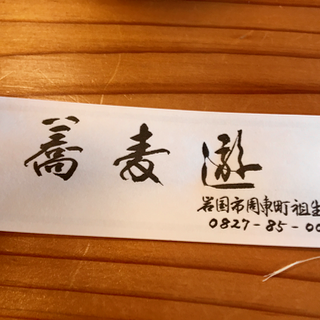 蕎麦遊
岩国市周東町祖生
0827-85-00